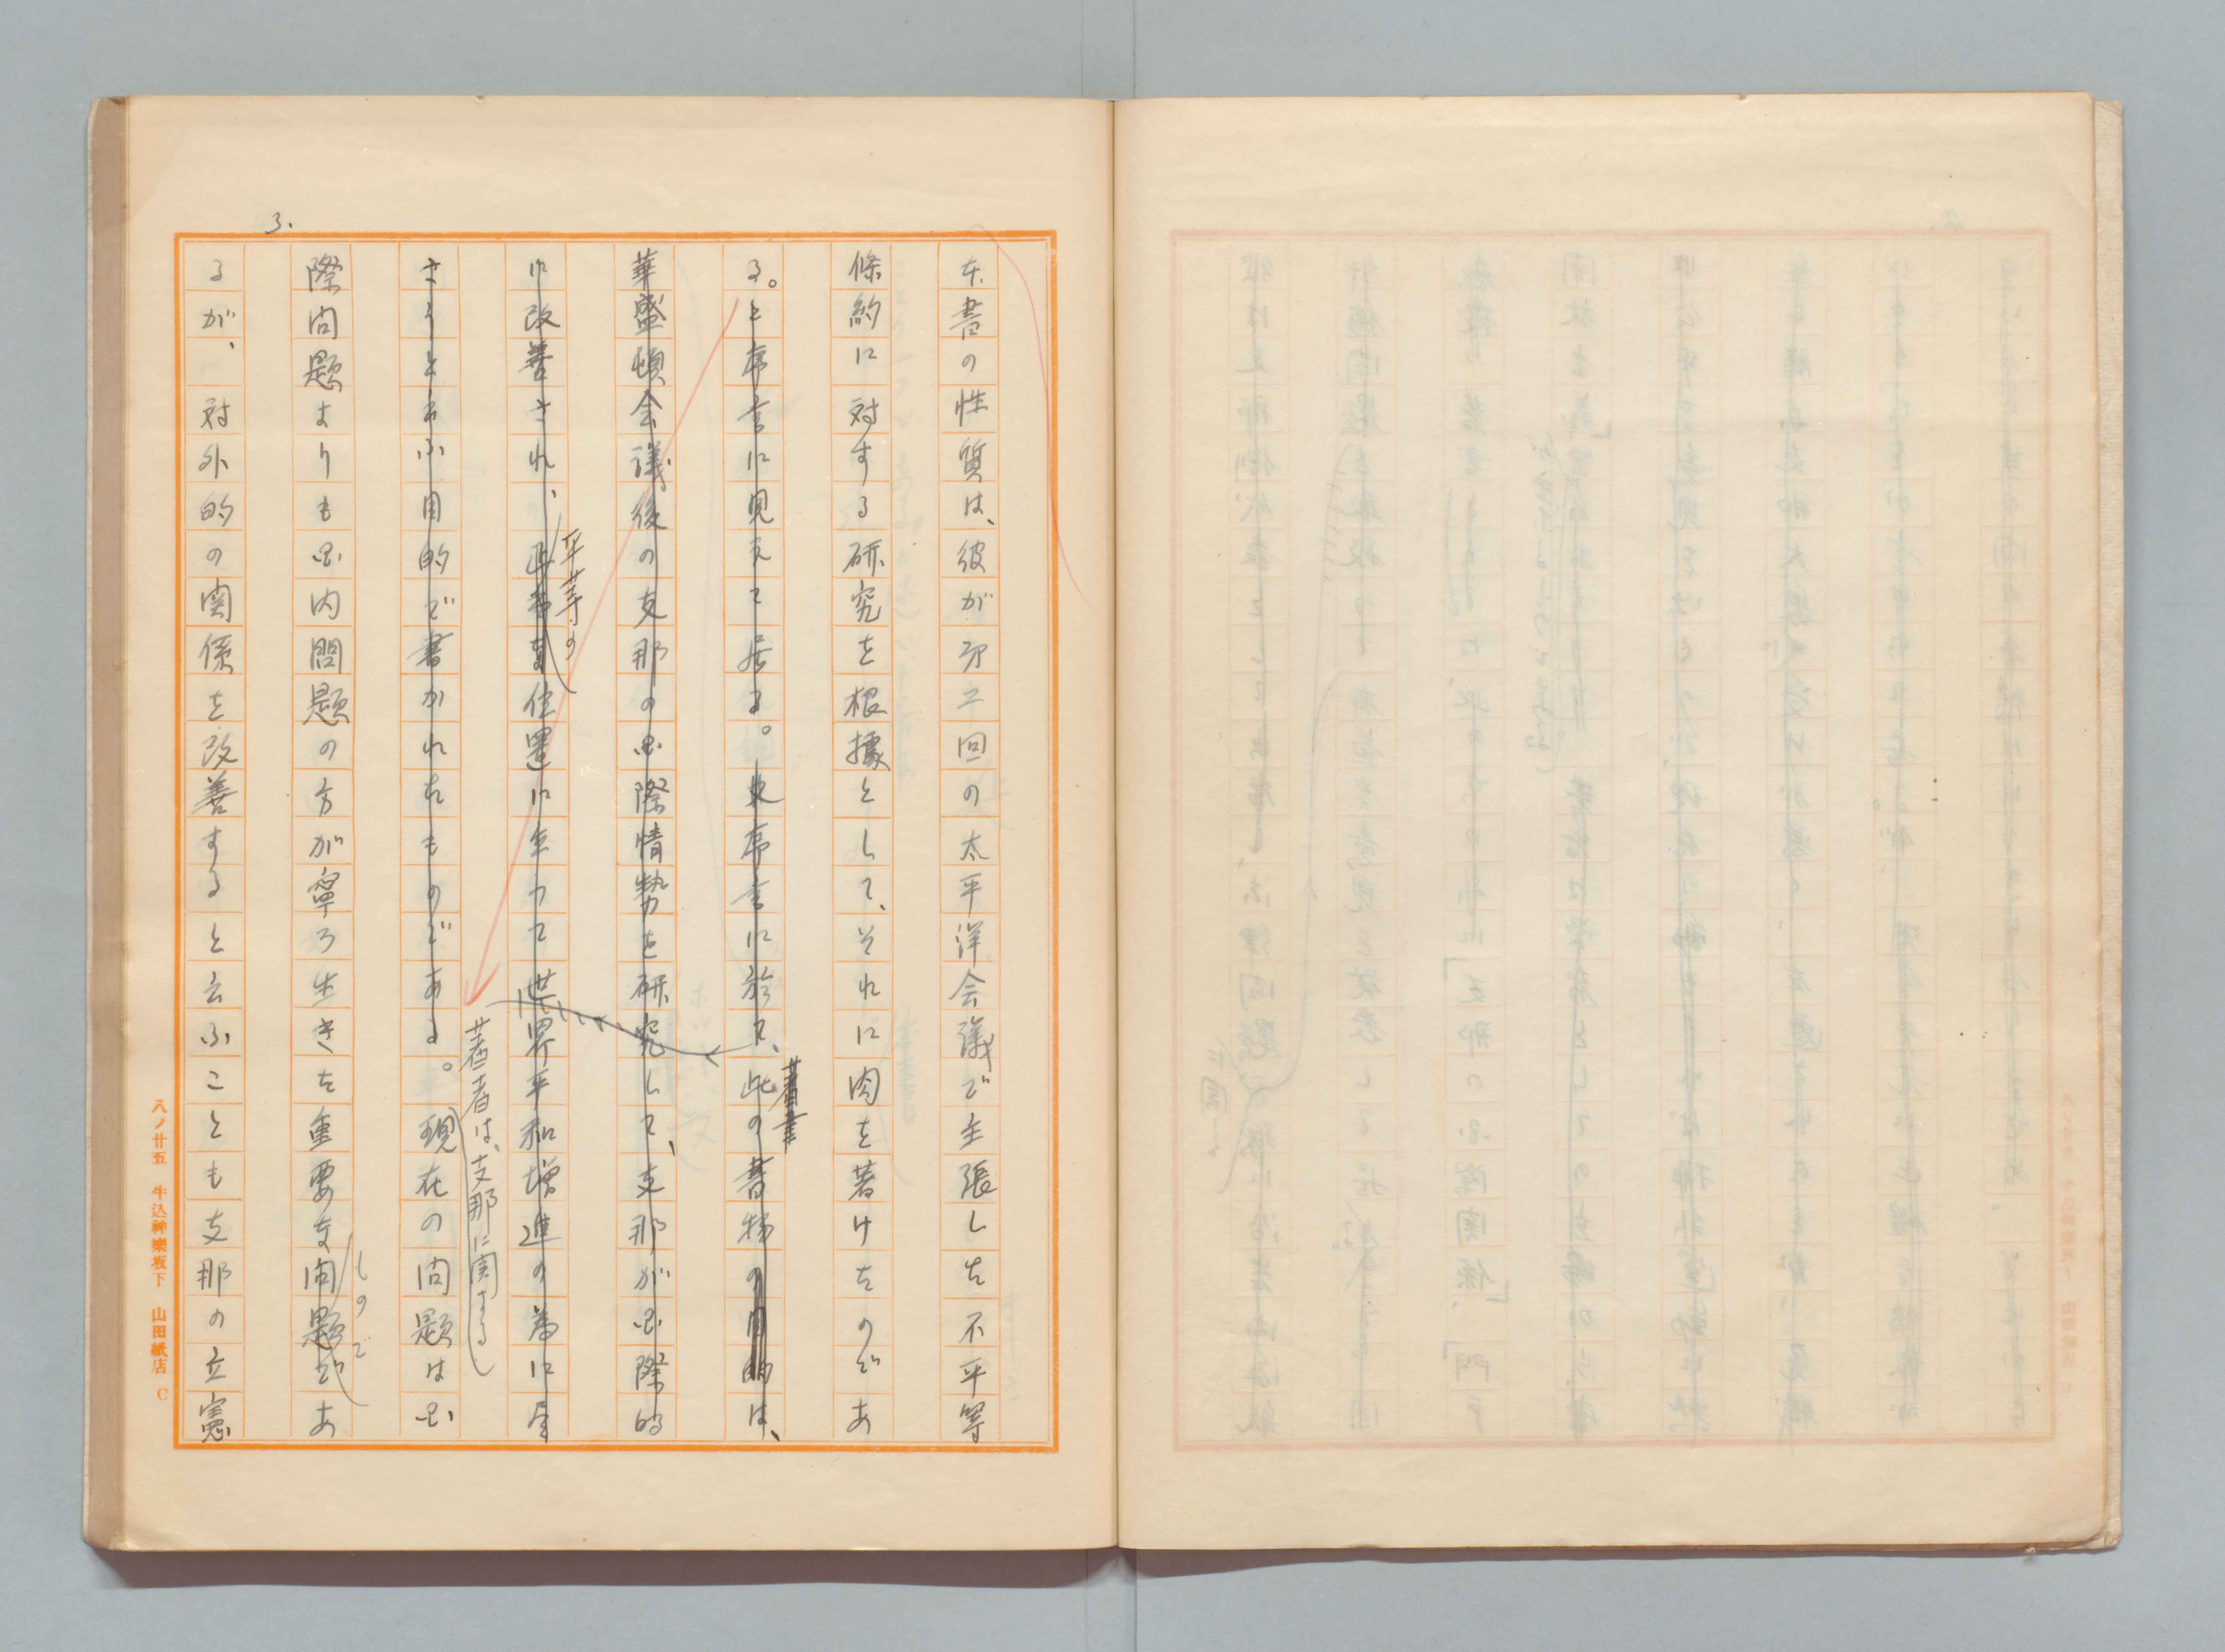 3.
本書の性質は、彼が第二回の太平洋会議で主張した不平等
條約に対する研究を根據として、それに肉を著けたのであ
る。と序言に見えて居る。更序言に於て、此の書物の目的は、
著書
華盛頓会議後の支那の国際情勢を研究して、支那が国際的
に改善され、位置に立つて世界平和増進の為に
平等の
さうとあふ目的で書かれたものである。現在の問題は国
著者は、支那に関する
際問題よりも国内問題の方が寧ろ生きた重要な問題であ
もので
るが、対外的の関係を改善すると云ふことも支那の立憲
八ノ廿五 牛込神樂坂下 山田紙店 C